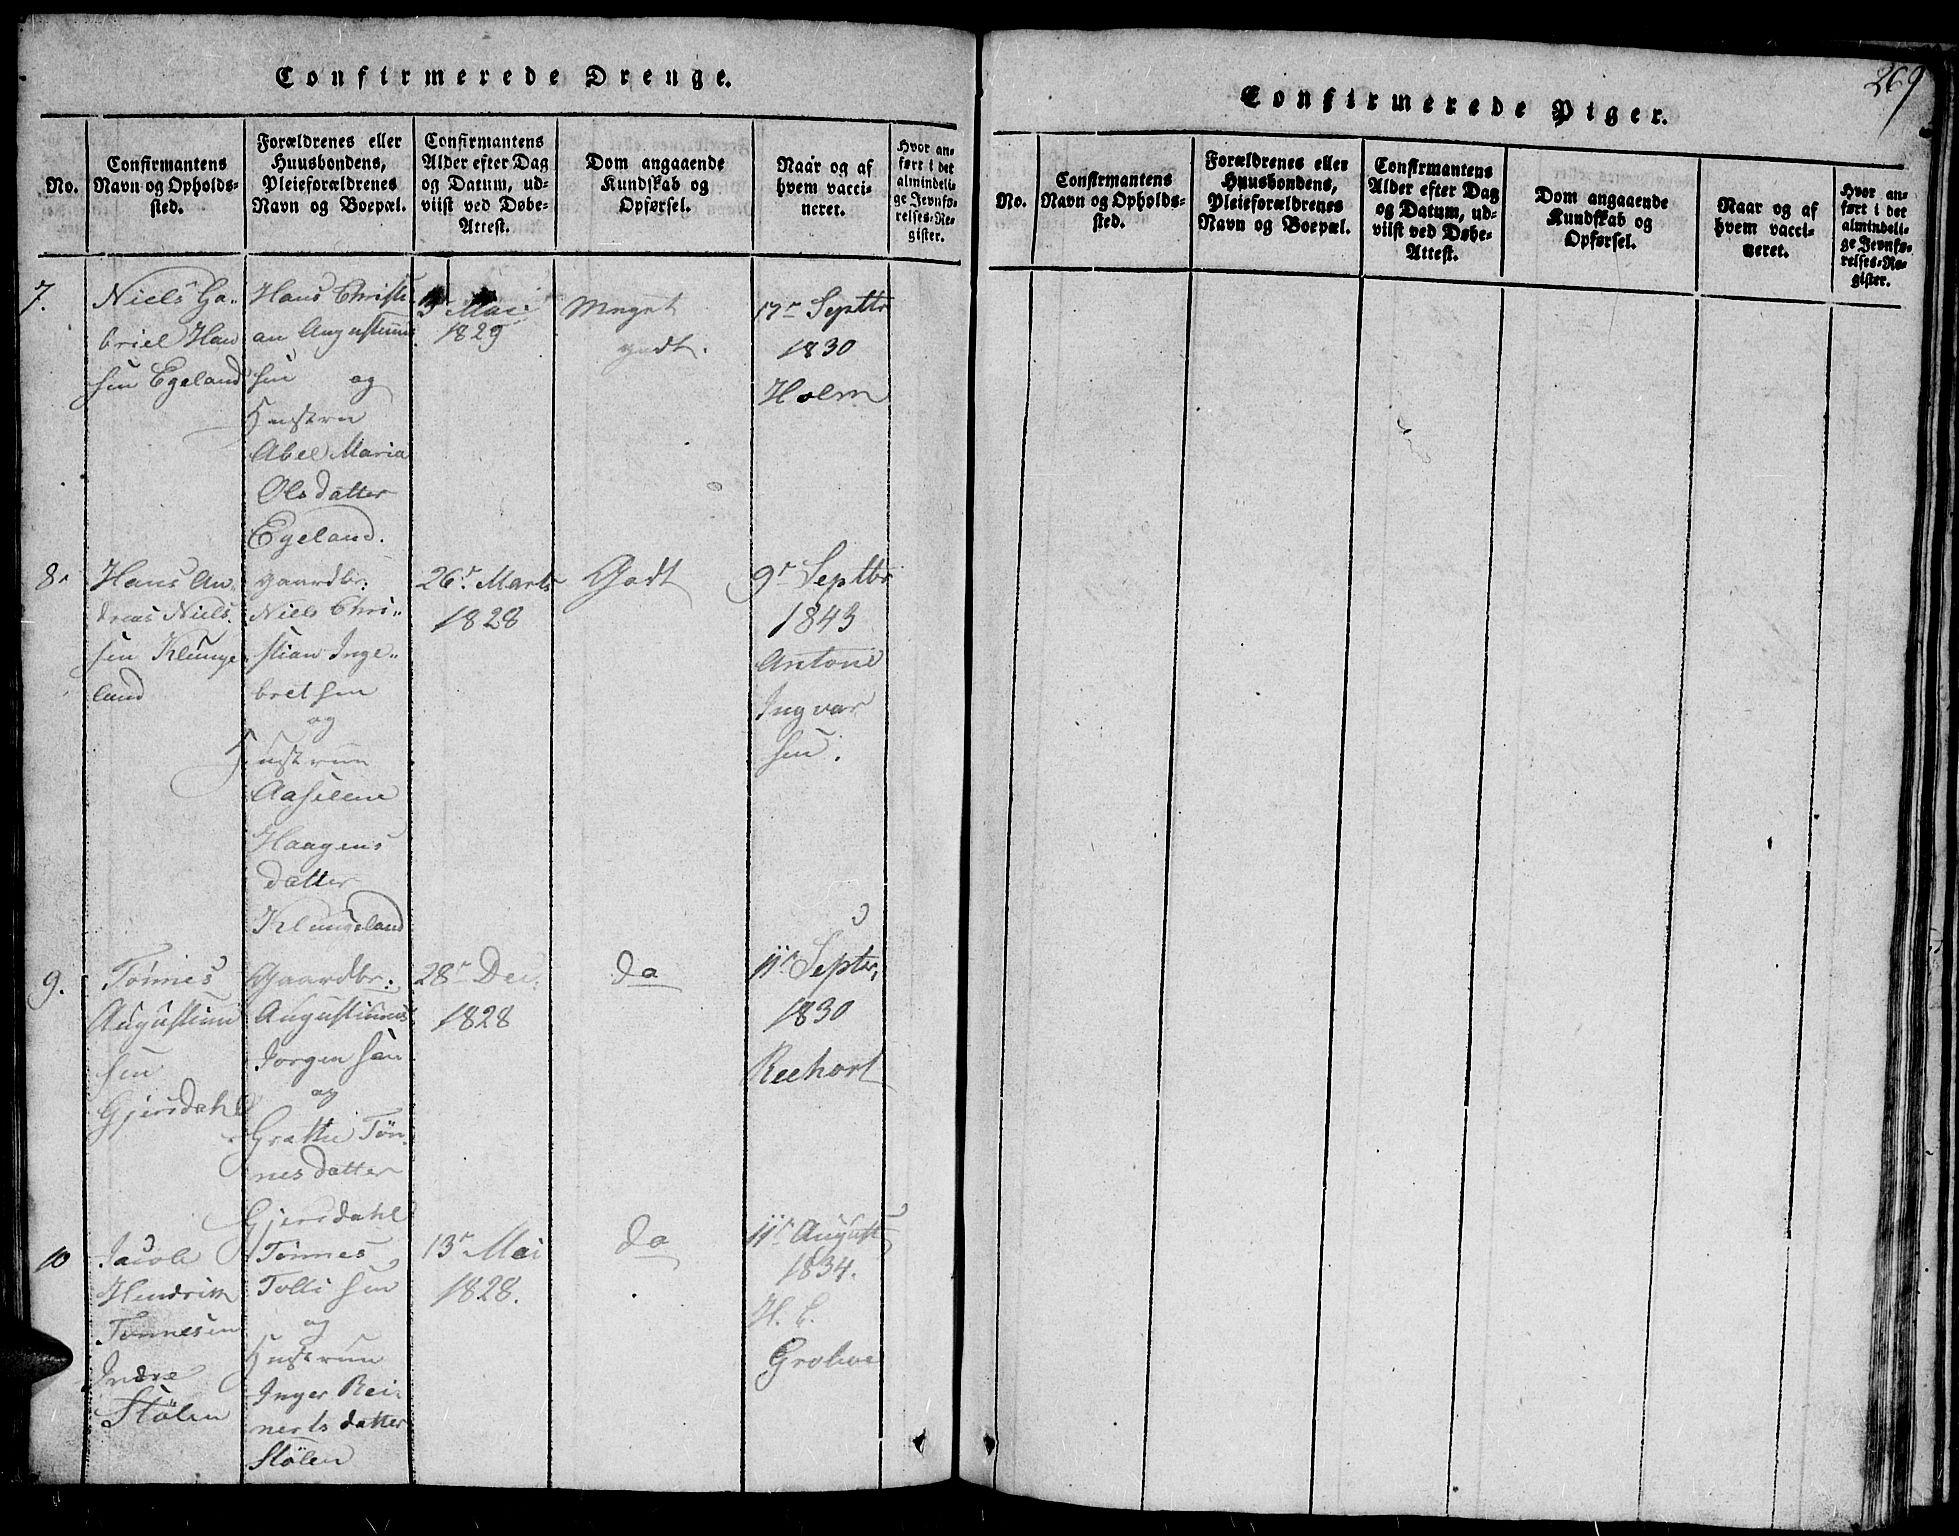 Confirmerede Drenge.
No.
Confirmantens
Navn og Opholds-
sted.
Forældrenes eller
Huusbondens,
Pleieforældrenes
Navn og Boepæl.
Confirmantens
Alder efter Dag
og Datum, ud-
viist ved Døbe-
Attest.
Dom angaaende
Kundskab og
Opførsel.
Naar og af
hvem vacci-
neret.
Hvor an-
ført i det
almindeli-
ge Jevnfø-
relses-Re-
gister.
7.
Niels Ga-
briel Han
sen Egeland
Hans Christi
an Augustinus
sen og
Hustru
Abel Maria
Olsdatter
Egeland.
Mai
1829
Meget
godt.
17r Septbr
1830
Holm
8.
Hans An-
dreas Niels-
sen Klunge
land
Gaardbr:
Niels Chri-
stian Inge-
bretsen
og
Hustrue
Aaselene
Haagens
datter
Klungeland
26r Marts
1828
Godt
9r Septbr
1843
Antoni
Ingvar
sen.
9.
Tönnes
Augustinu
sen
Gjersdahl
Gaardbr:
Augustinus
Jörgensen
og
Grethe Tön-
nesdatter
Gjersdahl
28r Dec.
1828
do
11r Septbr,
1830
Reehort
10
Jacob
Hendrik
Tønnesen
Indre
Stölen
Tönnes
Tollisen
og
Hustrue
Inger Rei-
nertsdatter
Stölen
13r Mai
1828.
do
11r August
1834.
H. C.
Grohve
269
Confirmerede Piger.
No.
Confirmantens
Navn og Opholds-
sted.
Forældrenes eller
Huusbondens,
Pleieforældrenes
Navn og Boepæl.
Confirmantens
Alder efter Dag
og Datum, ud-
viist ved Døbe-
Attest.
Dom angaaende
Kundskab og
Opførsel.
Naar og af
hvem vacci-
neret.
Hvor an-
ført i det
almindeli-
ge Jevnfø-
relses-Re-
gister.